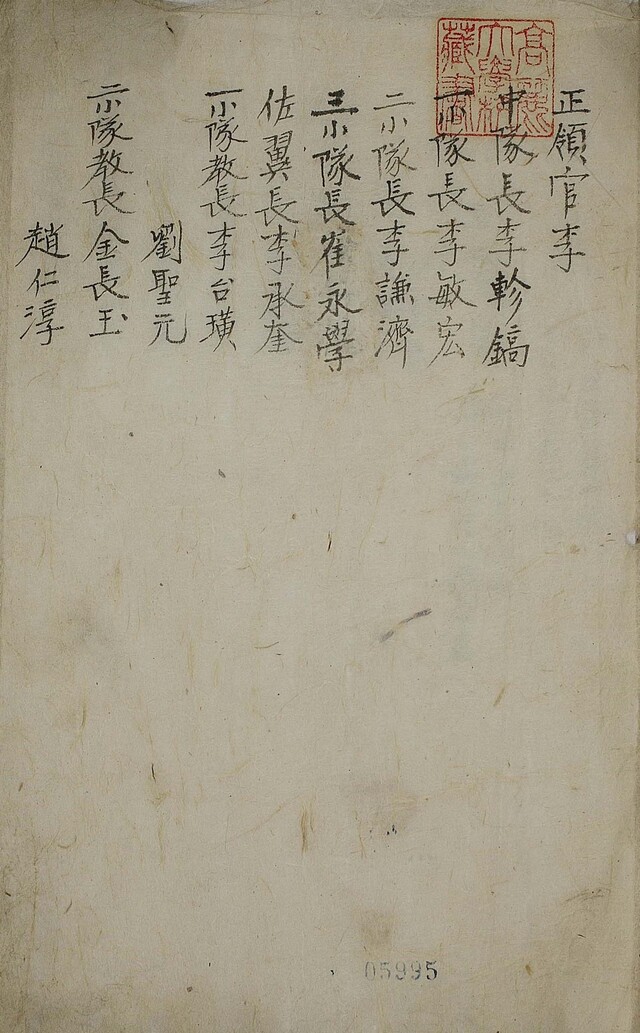 正領官李
中隊長李軫鎬
一小隊長李敏宏
二小隊長李謙濟
三小隊長崔永學
佐翼長李承奎
一小隊教長李台璜
劉聖元
二小隊教長金長玉
趙仁淳
高麗
大學校
藏書
05995